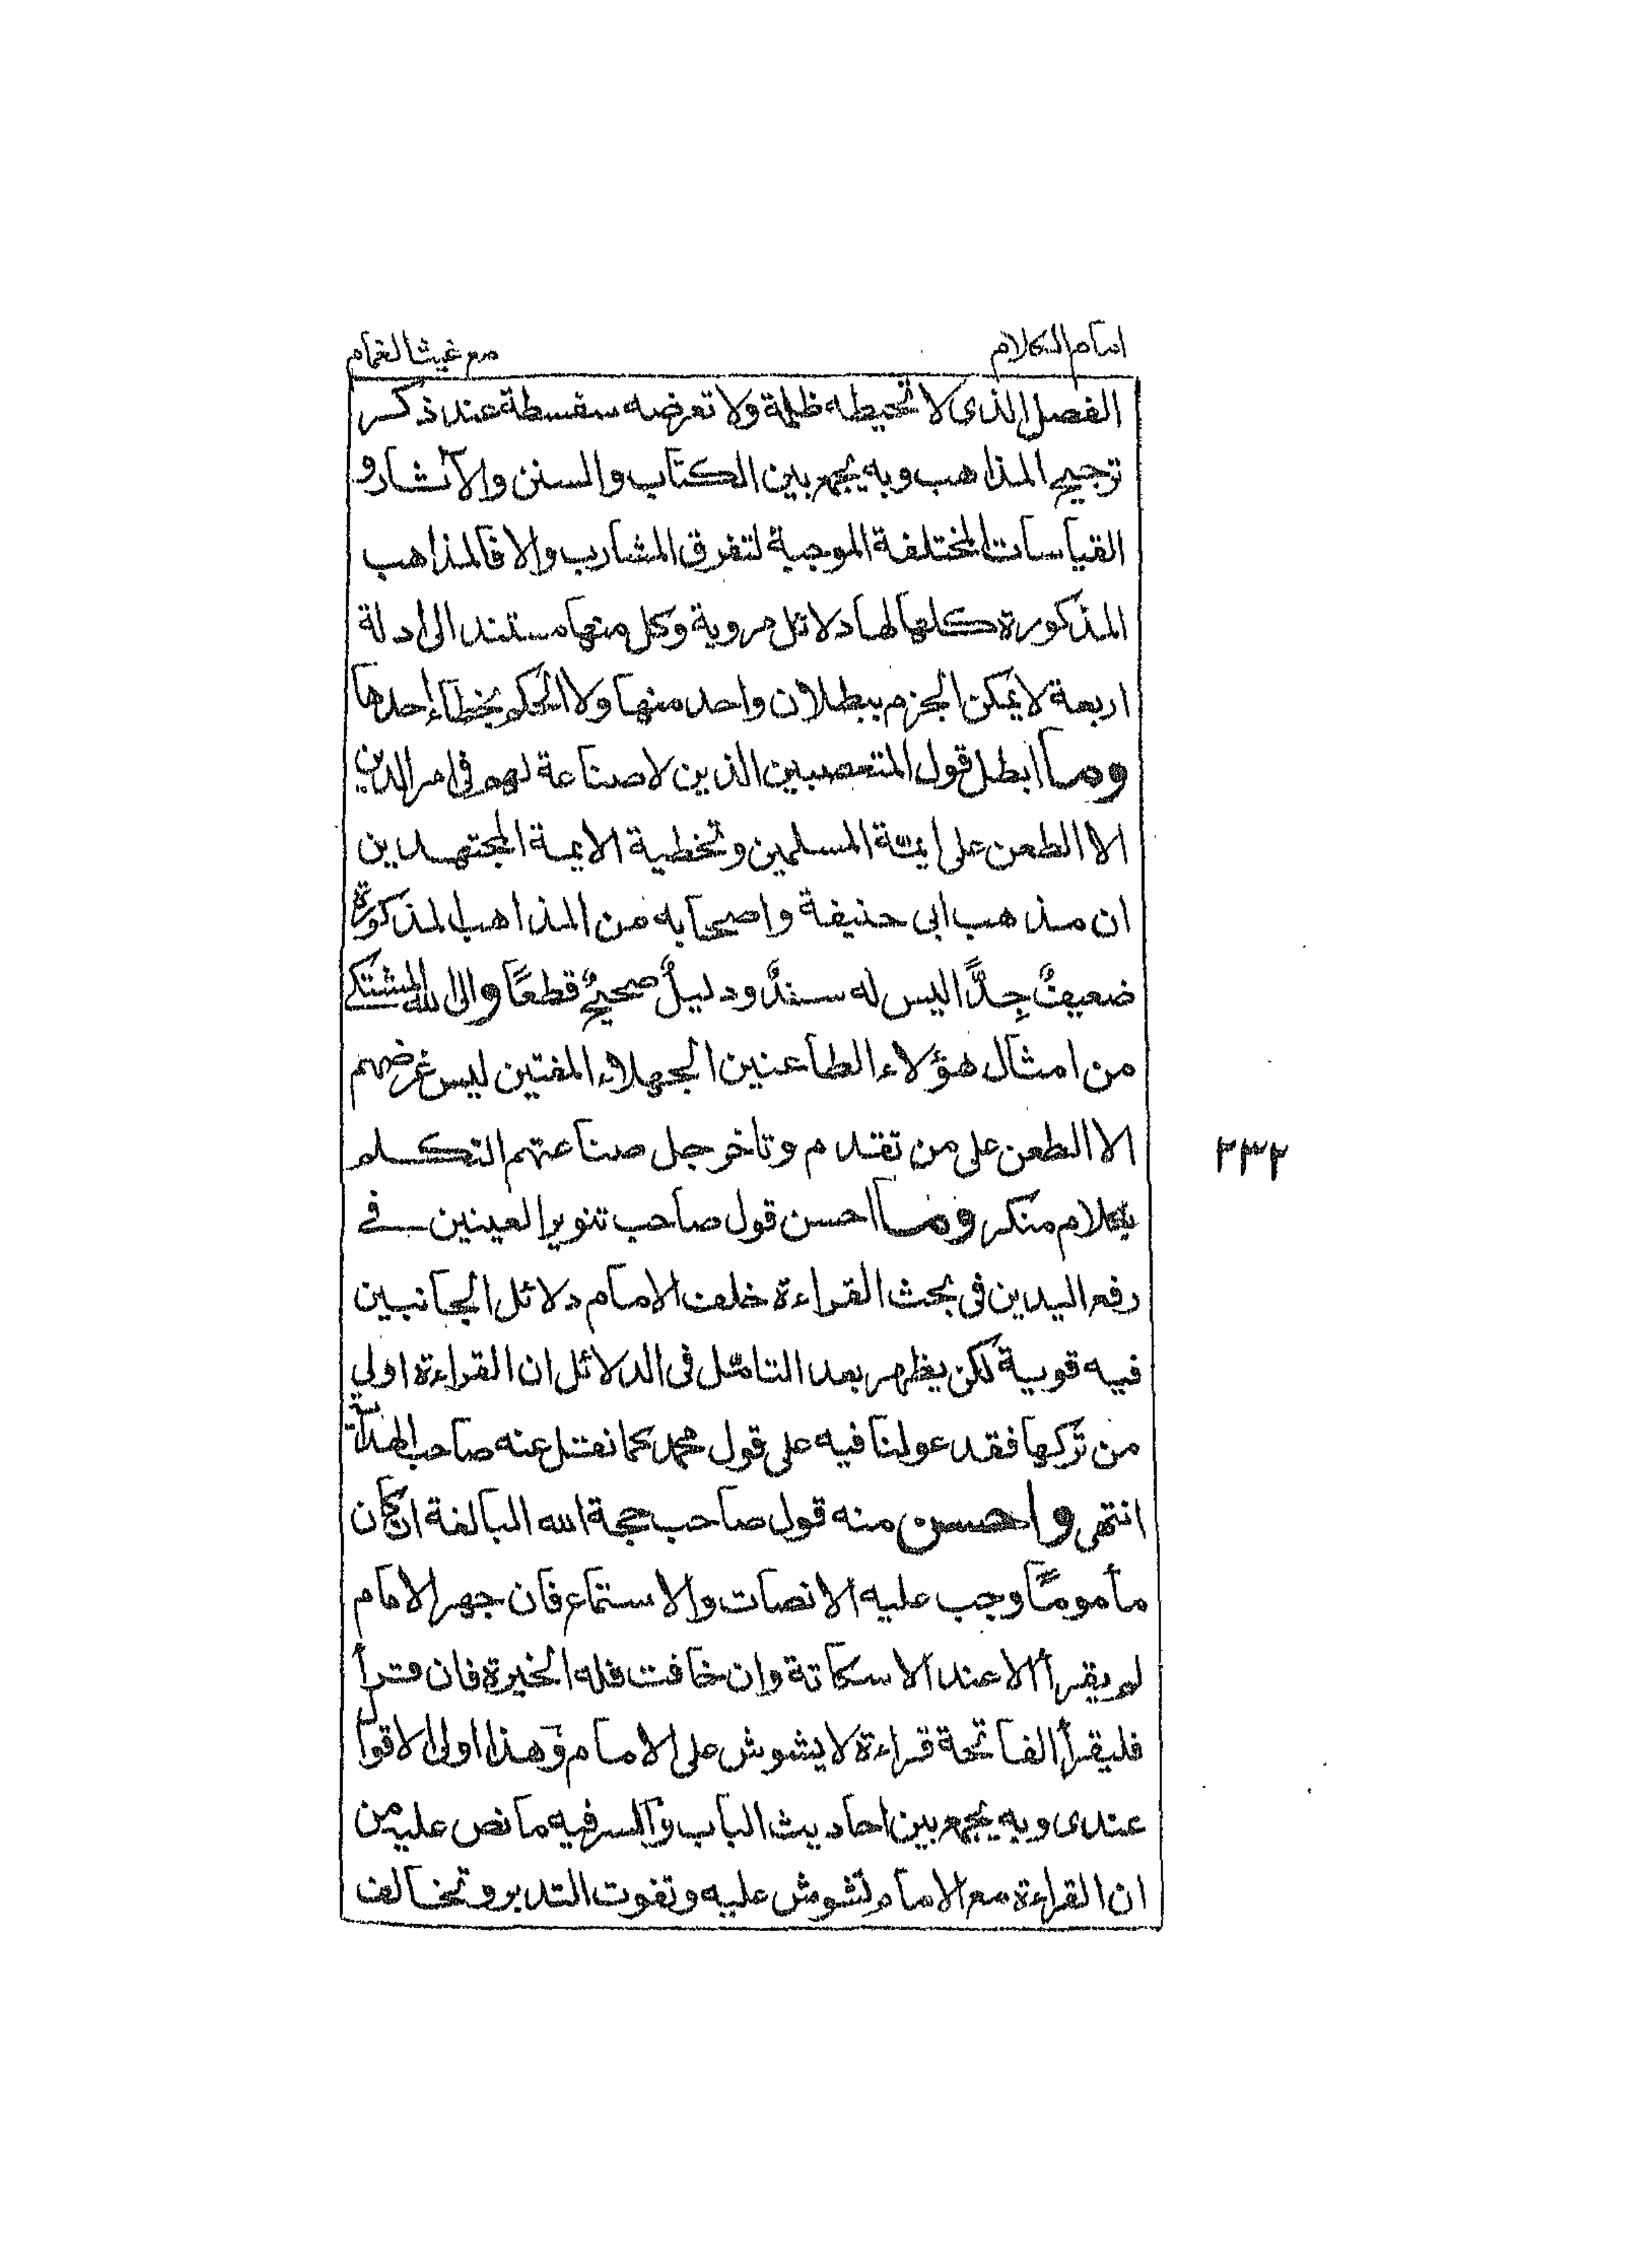 امام الكلام
مع غيث الغمام
الفصل الذى لا تحيطه ظلمة ولا تعرضه سفسطة عند ذكر
ترجيح المذاهب وبه يجمع بين الكتاب والسنن والآثار و
القياسات المختلفة الموجبة لتفرق المشارب والا فالمذاهب
المذكورة كلها لها دلائل مروية وكل منها مستند الى ادلة
اربعة لا يمكن الجزم ببطلان واحد منها ولا الحكم بخطاء احدها
وما ابطل قول المتعصبين الذين لا صناعة لهم فى امر الدين
الا الطعن على ائمة المسلمين وتخطية الايمة المجتهدين
ان مذهب ابى حنيفة واصحابه من المذاهب المذكورة
ضعيفٌ جِدًّا ليس له سندٌ ودليلٌ صحيحٌ قطعًا والى الله المشتكى
من امثال هؤلاء الطاعنين الجهلاء المفتين ليس غرضهم
الا الطعن على من تقدم وتاخر جل صناعتهم التكلم
بكلام منكر وما احسن قول صاحب تنوير العينين فى
رفع اليدين فى بحث القراءة خلف الامام دلائل الجانبين
فيه قوية لكن يظهر بعد التامل فى الدلائل ان القراءة اولى
من تركها فقد عولنا فيه على قول محمد كما نقل عنه صاحب الهداية
انتهى واحسن منه قول صاحب حجة الله البالغة ان كان
مأمومًا وجب عليه الانصات والاستماع فان جهر الامام
لم يقرأ الا عند الاسكاتة وان خافت فله الخيرة فان قرأ
فليقرأ الفاتحة قراءة لا يشوش على الامام وهذا اولى الاقوال
عندى وبه يجمع بين احاديث الباب والسر فيه ما نص عليه من
ان القراءة مع الامام تشوش عليه وتفوت التدبر وتخالف
٢٣٢